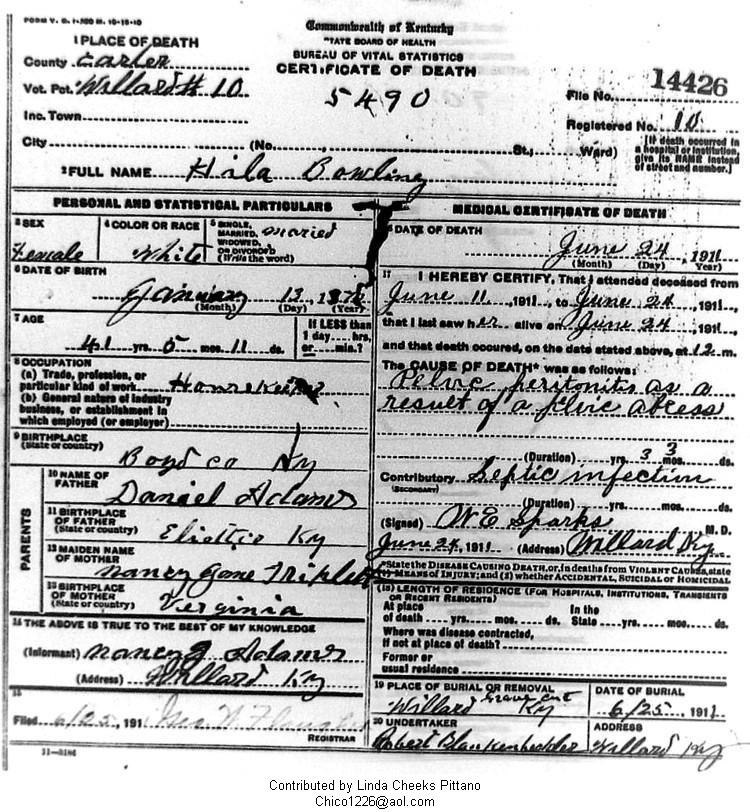 FORM V. S. 1-200 M. 10-15-10
Commonwealth of Kentucky
STATE BOARD OF HEALTH
BUREAU OF VITAL STATISTICS
CERTIFICATE OF DEATH
1 PLACE OF DEATH
County Carter
Vot. Pct. Willard # 10
5490
File No. 14426
Inc. Town
Registered No. 10
City (No. , St.; Ward)
[If death occurred in a hospital or institution, give its NAME instead of street and number.]
2 FULL NAME Hila Bowling
PERSONAL AND STATISTICAL PARTICULARS
3 SEX Female
4 COLOR OR RACE White
5 SINGLE, MARRIED, WIDOWED, OR DIVORCED (Write the word) married
6 DATE OF BIRTH
January 13 1870
(Month) (Day) (Year)
7 AGE
41 yrs. 5 mos. 11 ds.
If LESS than 1 day hrs. or min.?
8 OCCUPATION
(a) Trade, profession, or particular kind of work
(b) General nature of industry business, or establishment in which employed (or employer)
9 BIRTHPLACE
(State or country) Boyd co Ky
PARENTS
10 NAME OF FATHER Daniel Adams
11 BIRTHPLACE OF FATHER
(State or country) Ky
12 MAIDEN NAME OF MOTHER Nancy Jane Triplett
13 BIRTHPLACE OF MOTHER
(State or country) Virginia
14 THE ABOVE IS TRUE TO THE BEST OF MY KNOWLEDGE
(Informant) Nancy J Adams
(Address) Willard Ky
15
Filed 6/25, 191
REGISTRAR
11-3186
MEDICAL CERTIFICATE OF DEATH
DATE OF DEATH
June 24, 1911
(Month) (Day) (Year)
17 I HEREBY CERTIFY, That I attended deceased from
June 11, 1911, to June 24, 1911,
that I last saw her alive on June 24, 1911,
and that death occured, on the date stated above, at 12 m.
The CAUSE OF DEATH* was as follows:
Pelvic peritonits as a
result of a pelvic abcess
(Duration) yrs. mos. ds.
Contributory Septic infection
(SECONDARY)
(Duration) yrs. mos. ds.
(Signed) W E Sparks M. D.
June 24, 1911 (Address) Willard Ky
*State the DISEASE CAUSING DEATH, or, in deaths from VIOLENT CAUSES, state (1) MEANS OF INJURY; and (2) whether ACCIDENTAL, SUICIDAL or HOMICIDAL
(18) LENGTH OF RESIDENCE (FOR HOSPITALS, INSTITUTIONS, TRANSIENTS OR RECENT RESIDENTS)
At place of death yrs. mos. ds. In the State yrs. mos. ds.
Where was disease contracted, if not at place of death?
Former or usual residence
19 PLACE OF BURIAL OR REMOVAL
Willard Ky
DATE OF BURIAL
6/25, 1911
20 UNDERTAKER
Robert Blankenbeckler
ADDRESS
Willard Ky
Contributed by Linda Cheeks Pittano
Chico1226@aol.com